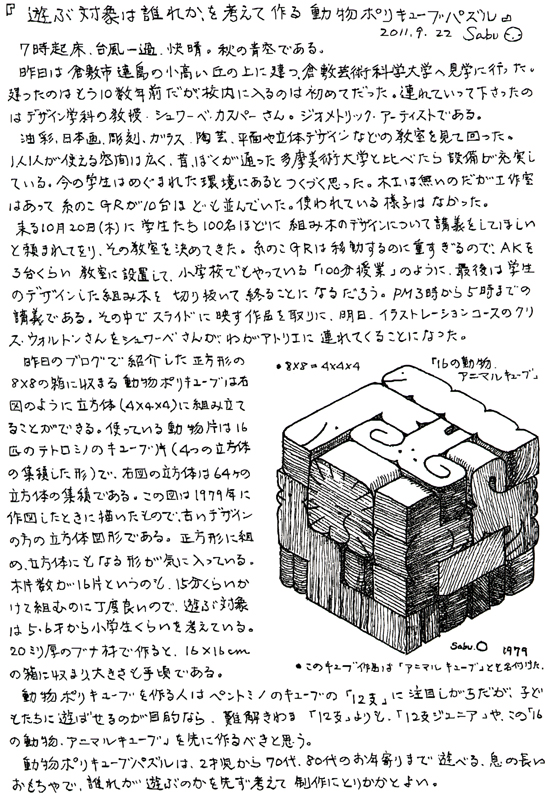 『遊ぶ対象は誰れか、を考えて作る動物ポリキューブパズル』
2011.9.22 Sabu
7時起床、台風一過、快晴。秋の青空である。
昨日は倉敷市連島の小高い丘の上に建つ、倉敷芸術科学大学へ見学に行った。
建ったのはもう10数年前だが、校内に入るのは初めてだった。連れていって下さったの
はデザイン学科の教授・シュワーベ・カスパーさん。ジオメトリック・アーティストである。
油彩、日本画、彫刻、ガラス、陶芸、平面や立体デザインなどの教室を見て回った。
1人1人が使える空間は広く、昔、ぼくが通った多摩美術大学と比べたら設備が充実し
ている。今の学生はめぐまれた環境にあるとつくづく思った。木工は無いのだが工作室
はあって糸のこGRが10台ほども並んでいた。使われている様子はなかった。
来る10月20日(木)に学生たち100名ほどに組み木のデザインについて講義をしてほしい
と頼まれており、その教室を決めてきた。糸のこGRは移動するのに重すぎるので、AKを
3台くらい教室に設置して、小学校でもやっている「100分授業」のように、最後は学生
のデザインした組み木を切り抜いて終ることになるだろう。PM3時から5時までの
講義である。その中でスライドに映す作品を取りに、明日、イラストレーションコースのクリ
ス・ウォルトンさんをシュワーベさんが、わがアトリエに連れてくることになった。
昨日のブログで紹介した正方形の
8×8の箱に収まる動物ポリキューブは右
図のように立方体(4×4×4)に組み立て
ることができる。使っている動物片は16
匹のテトロミノのキューブ片(4つの立方体
の集積した形)で、右図の立方体は64ヶの
立方体の集積である。この図は1979年に
作図したときに描いたもので、古いデザイン
の方の立方体図形である。正方形に組
め、立方体にもなる形が気に入っている。
木片数が16片というのも、15分くらいか
けて組むのに丁度良いので、遊ぶ対象
は5・6才から小学生くらいを考えている。
20ミリ厚のブナ材で作ると、16×16cm
の箱に収まり大きさも手頃である。
•8×8=4×4×4
「16の動物、
アニマルキューブ」
Sabu. 1979
•このキューブ作品は「アニマルキューブ」とも名付けた。
動物ポリキューブを作る人はペントミノのキューブの「12支」に注目しがちだが、子ど
もたちに遊ばせるのが目的なら、難解きわまる「12支」よりも、「12支ジュニア」や、この「16
の動物、アニマルキューブ」を先に作るべきと思う。
動物ポリキューブパズルは、2才児から70代、80代のお年寄りまで遊べる、息の長い
おもちゃで、誰れが遊ぶのかを先ず考えて制作にとりかかるとよい。